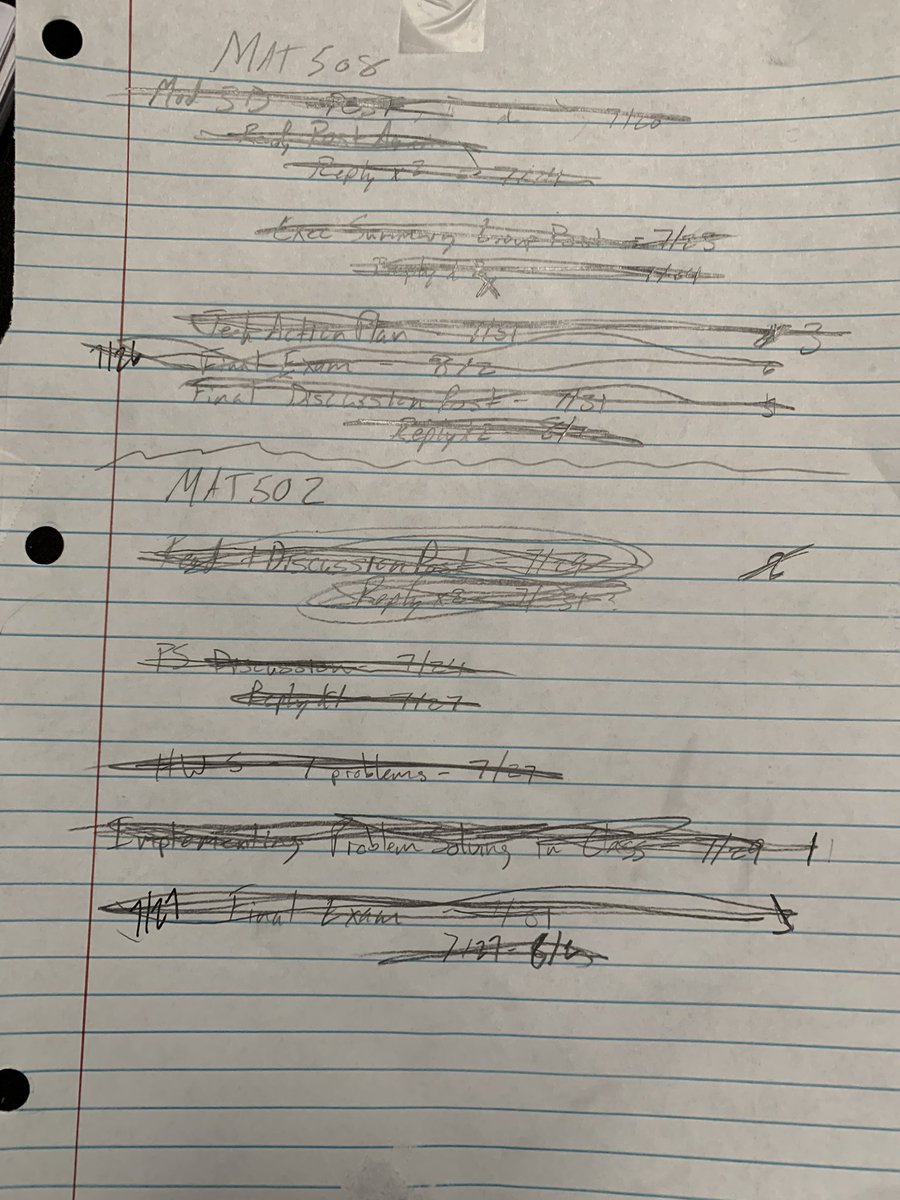 MAT 508
Mod 5 D Post 7/20
Post Again
Reply x2 -
Exec Summary Group Post - 7/23
Reply x2
Tech Action Plan - 7/31 3
7/26 Final Exam - 8/2 6
Final Discussion Post - 7/31 5
Reply x2 -
MAT 502
Read + Discussion Post - 7/29 2
Reply x2 - 7/31?
PS Discussion - 7/24
Reply x1 - 7/27
HW 5 - 7 problems - 7/27
Implementing Problem Solving in Class - 7/29 1
7/27 Final Exam - 7/31
7/27 -